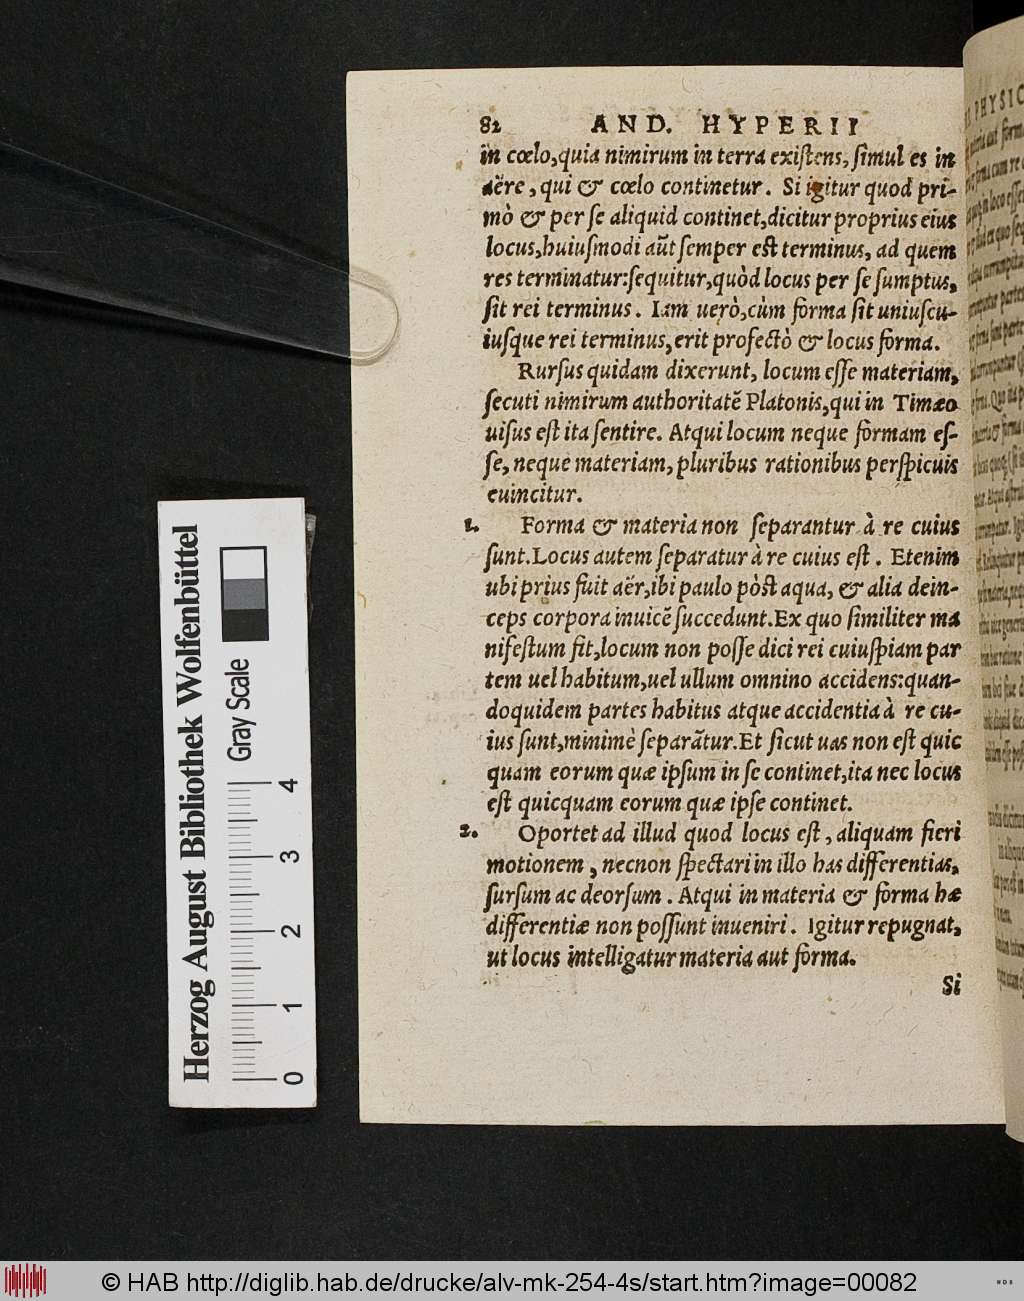 82 AND. HYPERII
in cœlo, quia nimirum in terra exiſtens, ſimul es in
aëre, qui & cœlo continetur. Si igitur quod pri-
mò & per ſe aliquid continet, dicitur proprius eius
locus, huiuſmodi aūt ſemper eſt terminus, ad quem
res terminatur: ſequitur, quòd locus per ſe ſumptus,
ſit rei terminus. Iam uerò, cùm forma ſit uniuſcu-
iuſque rei terminus, erit profectò & locus forma.
Rurſus quidam dixerunt, locum eſſe materiam,
ſecuti nimirum authoritatē Platonis, qui in Timæo
uiſus eſt ita ſentire. Atqui locum neque formam eſ-
ſe, neque materiam, pluribus rationibus perſpicuis
euincitur.
1. Forma & materia non ſeparantur à re cuius
ſunt. Locus autem ſeparatur à re cuius eſt. Etenim
ubi prius fuit aër, ibi paulo pòſt aqua, & alia dein-
ceps corpora inuicē ſuccedunt. Ex quo ſimiliter ma
nifeſtum fit, locum non poſſe dici rei cuiuſpiam par
tem uel habitum, uel ullum omnino accidens: quan-
doquidem partes habitus atque accidentia à re cu-
ius ſunt, minimè ſeparātur. Et ſicut uas non eſt quic
quam eorum quæ ipſum in ſe continet, ita nec locus
eſt quicquam eorum quæ ipſe continet.
2. Oportet ad illud quod locus eſt, aliquam fieri
motionem, necnon ſpectari in illo has differentias,
ſurſum ac deorſum. Atqui in materia & forma hæ
differentiæ non poſſunt inueniri. Igitur repugnat,
ut locus intelligatur materia aut forma.
Si
Herzog August Bibliothek Wolfenbüttel
Gray Scale
0 1 2 3 4
© HAB http://diglib.hab.de/drucke/alv-mk-254-4s/start.htm?image=00082